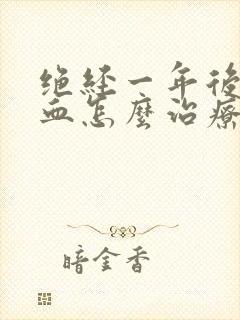 绝经一年後
血怎麼治療
暗金香